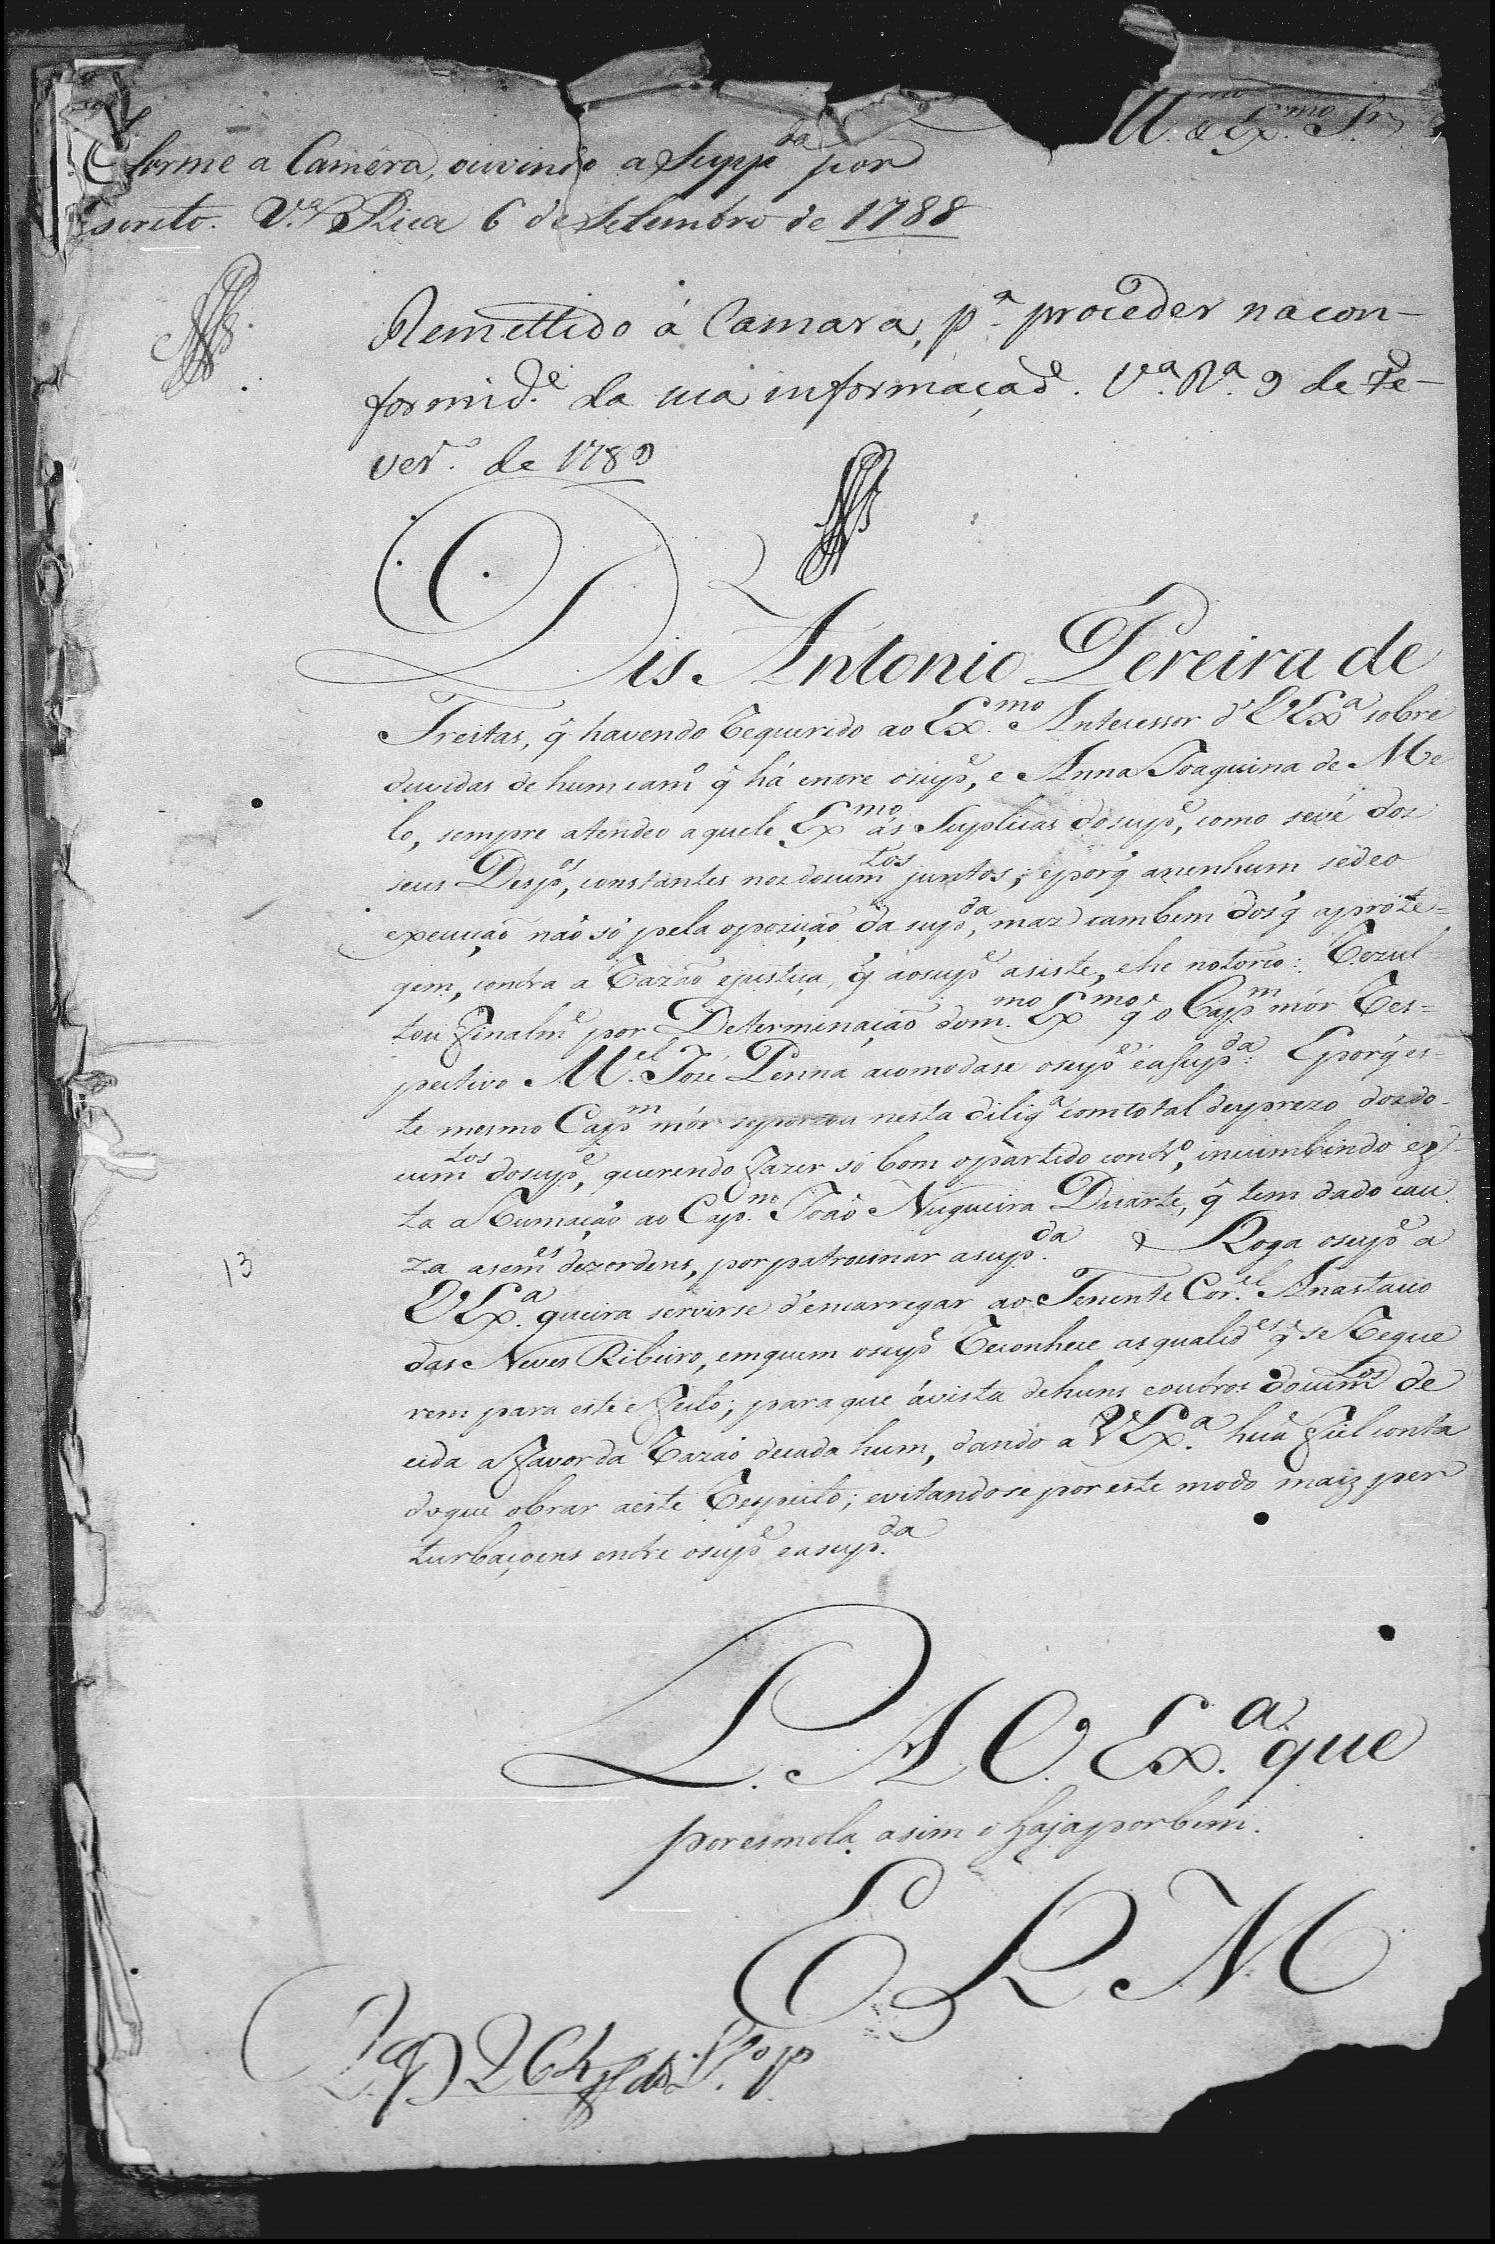 Il.mo e Ex.mo Sr.
forme a Camera, ouvindo a Supp.da por
escrito. V.a Rica 6 de Setembro de 1788
Remettido á Camara, p.a proceder na con-
formid.e da sua informação. V.a R.a 9 de Fe-
ver.o de 1789
Dis Antonio Pereira de
Freitas, q̃ havendo Requerido ao Ex.mo Antecessor d'VEx.a sobre
duvidas de hum cam.o q̃ há entre osup.e, e Anna Joaquina de Me
lo, sempre atendeo aquele Ex.mo ás Suplicas dosup.e, como sevé dos
seus Desp.os, constantes nos docum.tos juntos; eporq̃ anenhum sedeo
execução não só pela opozição da sup.da, mas tambem dosq̃ aprote-
gem, contra a Razão ejustiça, q̃ aosup.e asiste, ehe notorio: Rezul
tou Finalm.e por Determinação dom.mo Ex.mo q̃ o Cap.m mór Res-
pectivo M.el José Penna acomodase osup.e easup.da: Eporq̃ es-
te mesmo Cap.m mór seportou nesta dilig.a comtotal desprezo dosdo-
cum.tos dosup.e, querendo Fazer só bom opartido contr.o, incumbindo es-
ta aRumação ao Cap.m João Nugueira Duarte, q̃ tem dado cau
za asem.es dezordens, porpatrocinar asup.da Roga osup.e a
VEx.a queira servirse d'encarregar ao Tenente Cor.el Anastacio
das Neves Ribeiro, emquem osup.e Reconhece asqualid.es q̃ se Reque
rem para este eFeito; para que ávista dehuns eoutros docum.tos de
cida aFavor da Razão decada hum, dando a VEx.a hũa Fiel conta
doque obrar aeste Respeito; evitandose por este modo mais per
turbaçoens entre osup.e easup.da
P. A V. Ex.a que
por esmola asim o haja por bem.
E R M
13